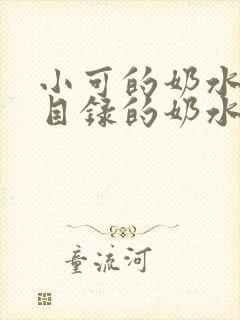 小可的奶水
目録的奶水
童流河